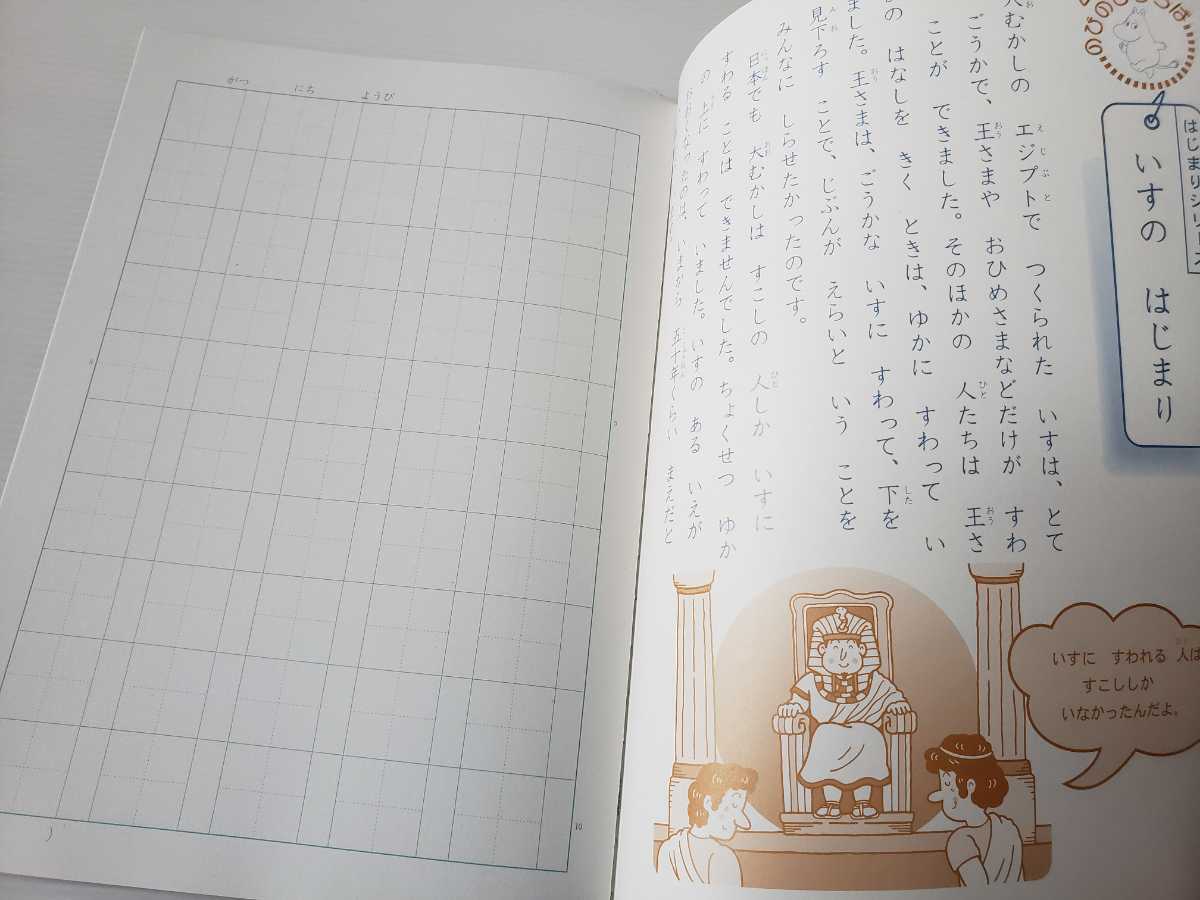 がつ にち ようび
5
9
10
のびのび
はじまりシリーズ
いすの はじまり
大むかしの エジプトで つくられた いすは、とて
ごうかで、王さまや おひめさまなどだけが すわ
ことが できました。そのほかの 人たちは 王さ
の はなしを きく ときは、ゆかに すわって い
ました。王さまは、ごうかな いすに すわって、下を
見下ろす ことで、じぶんが えらいと いう ことを
みんなに しらせたかったのです。
日本でも 大むかしは すこしの 人しか いすに
すわる ことは できませんでした。ちょくせつ ゆか
の 上に すわって いました。いすの ある いえが
おおくなったのは、いまから 五十年ぐらい まえだと
いすに すわれる 人は
すこししか
いなかったんだよ。